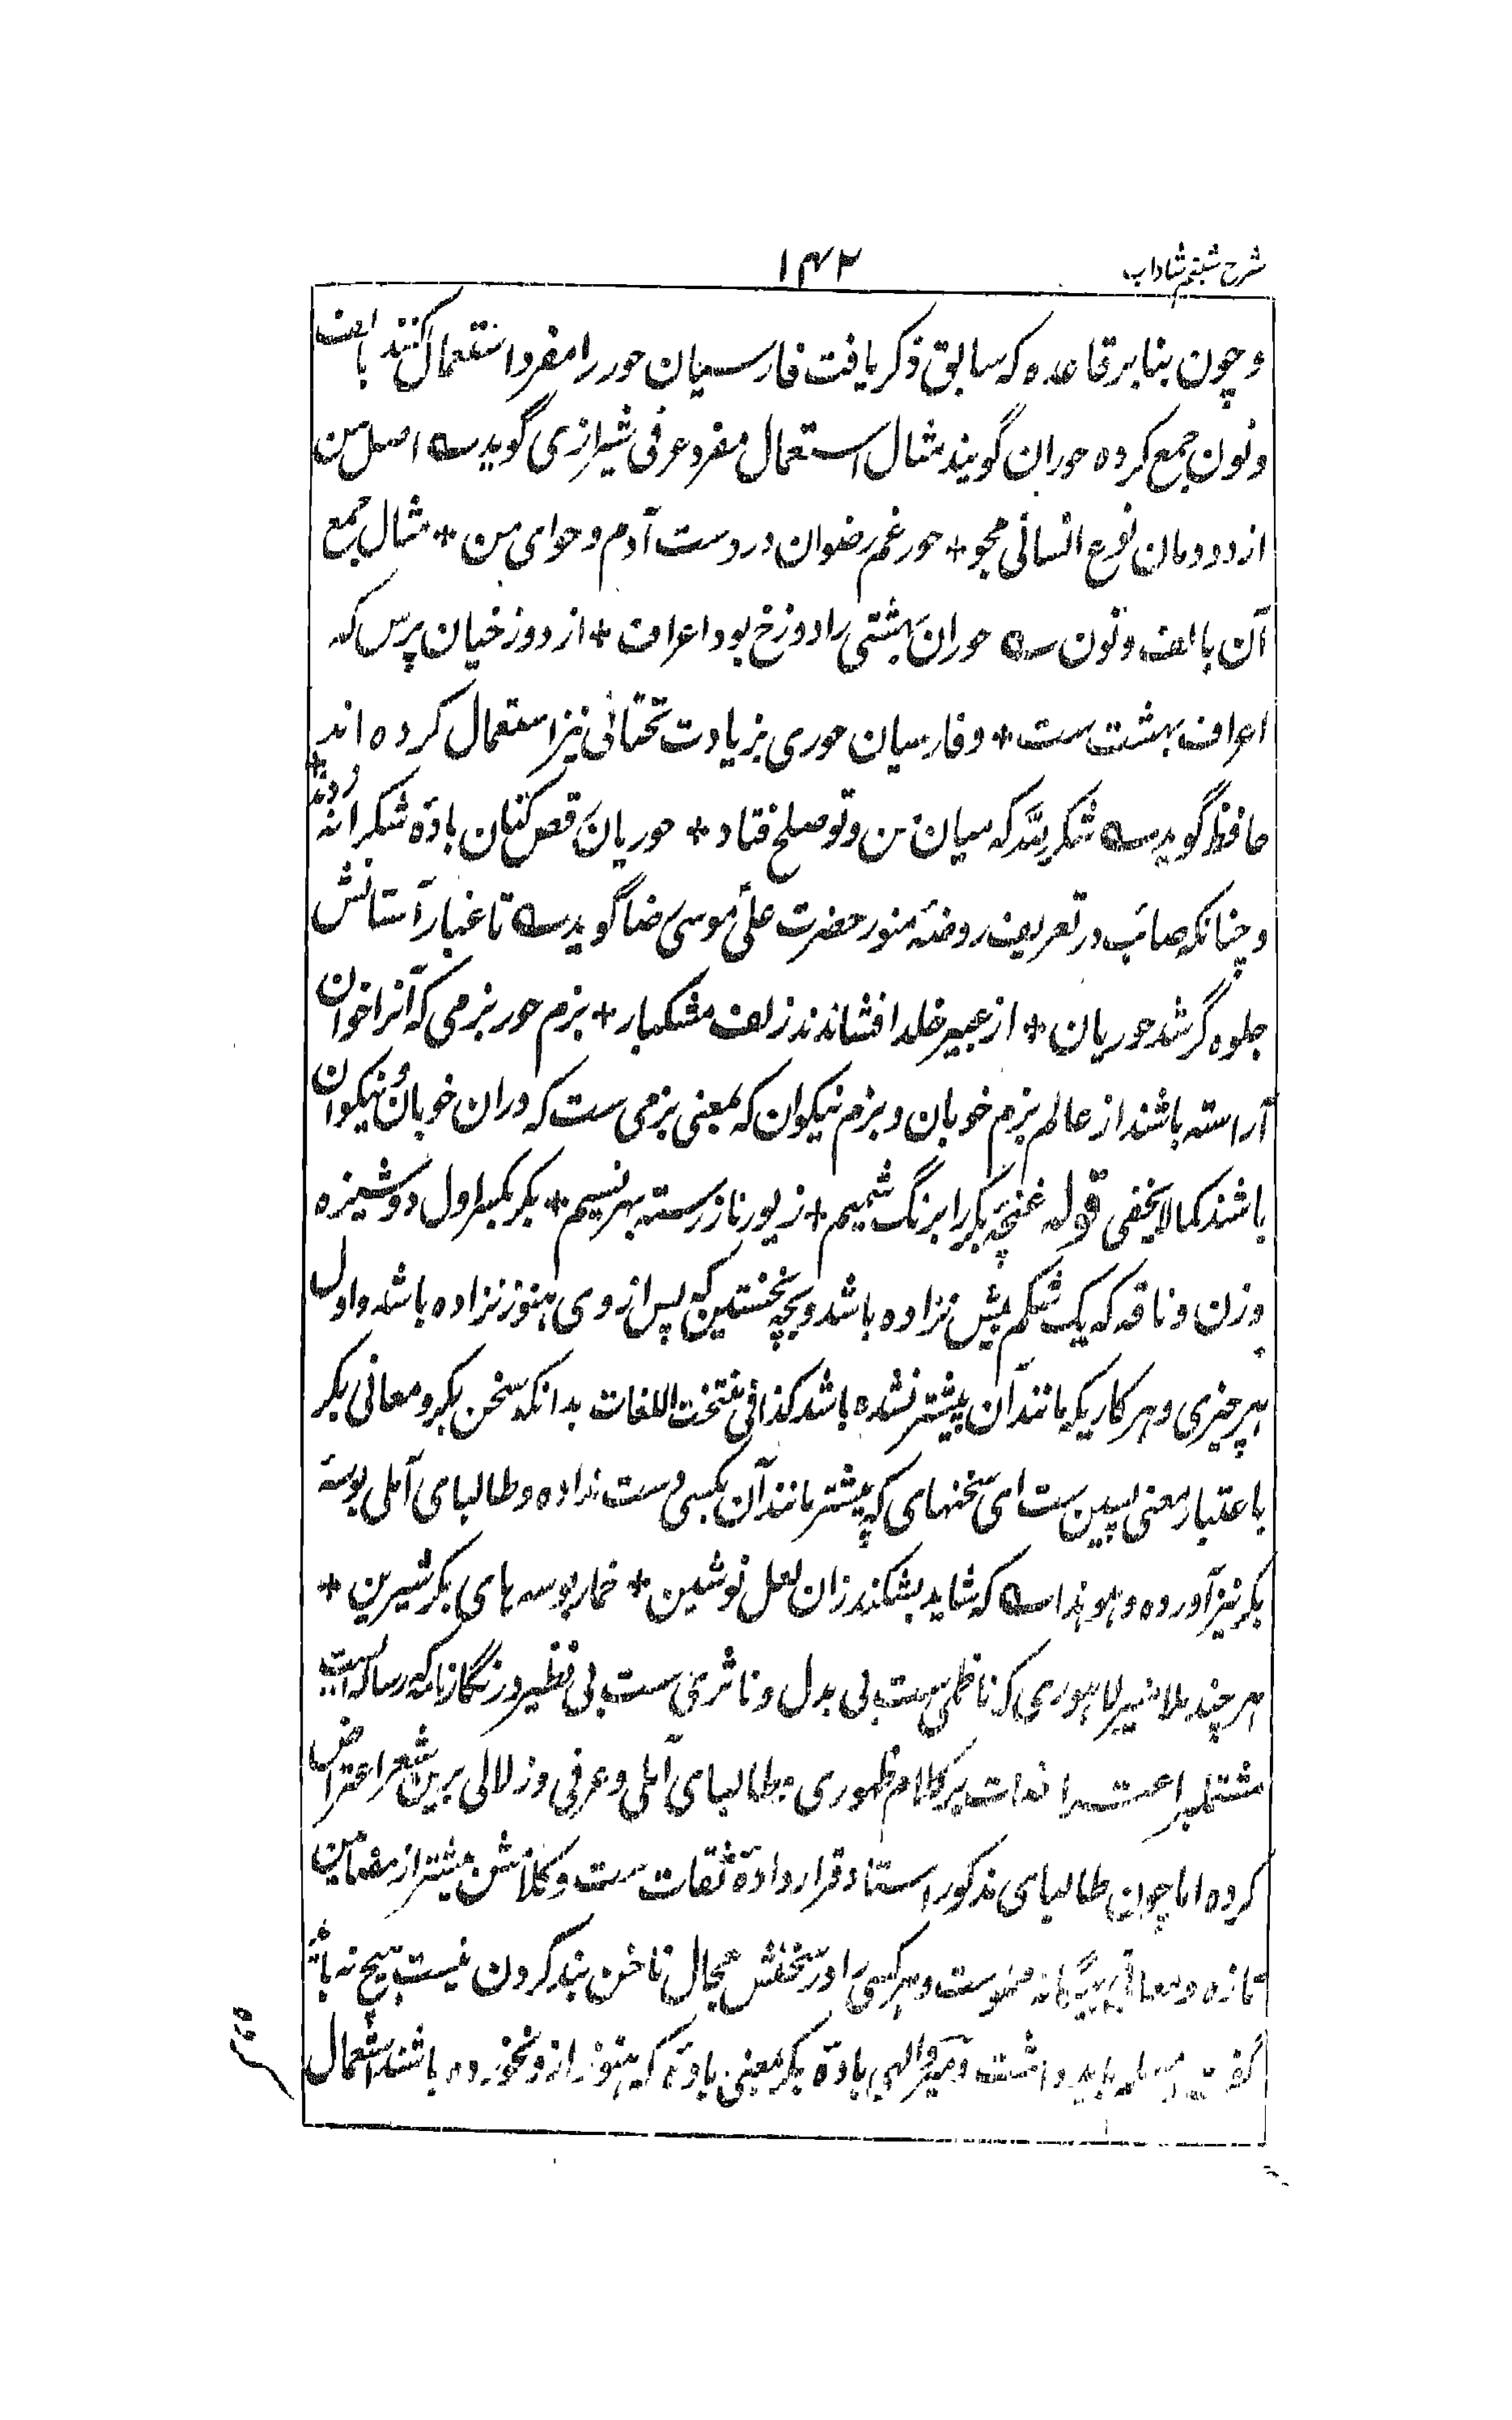 شرح شبنم شاداب
۱۴۲
و چون بنا بر قاعده که سابق ذکر یافت فارسیان حور را مفرد استعمال کنند بالف
و نون جمع کرده حوران گویند مثال استعمال مفرد عرفی شیرازی گوید ؎ اصل من
از دودمان نوع انسانی مجو + حور غم رضوان دردست آدم و حوای من + مثال جمع
آن بالف و نون ؎ حوران بهشتی را دوزخ بود اعراف + از دوزخیان پرس که
اعراف بهشت ست + و فارسیان حوری بزیادت تحتانی نیز استعمال کرده اند
حافظ گوید ؎ شکر لله که میان من و تو صلح فتاد + حوریان رقص کنان بادۀ شکرانه زدند +
و چنانکه صائب در تعریف روضۀ منور حضرت علی موسی رضا گوید ؎ تا غبار آستانش
جلوه گر شد حوریان + از عبیر خلد افشاندند زلف مشکبار + بزم حور بزمی که آنرا خوان
آراسته باشند از عالم بزم خوبان و بزم نیکوان که بمعنی بزمی ست که دران خوبان و نیکوان
باشند کما لا یخفی قوله غنچۀ بکر را برنگ شمیم + زیور ناز رسته بهر نسیم + بکر بکسر اول دوشیزه
و زن و ناقه که یک شکم بیش نزاده باشد و بچه نخستین که پس از وی هنوز نزاده باشد و اول
هر چیزی و هر کاریکه مانند آن پیشتر نشده باشد کذا فی منتخب اللغات بدانکه سخن بکر و معانی بکر
باعتبار معنی پسین ست ای سخنهای که پیشتر مانند آن بکسی دست نداده و طالبای آملی بوسۀ
بکر نیز آورده و هو هذا ؎ که شاید بشکند زان لعل نوشین + خمار بوسه های بکر شیرین +
هر چند ملا منیر لاهوری که ناظمی ست بی بدل و ناثری ست بی نظیر در نگارنامه که رساله ایست
مشتمل بر اعتراضات بر کلام ظهوری و طالبای آملی و عرفی و زلالی برین شعر اعتراض
کرده اما چون طالبای مذکور استاد قرار دادۀ ثقات ست و کلامش بیشتر از مضامین
تازه و معانی بیگانه مملوست و هر کسی را در سخنش مجال ناخن بند کردن نیست هیچ نه باشد
گفت مسلم باید داشت و میر الهی بادۀ بکر بمعنی بادۀ که هنوز ازو نخورده باشند استعمال